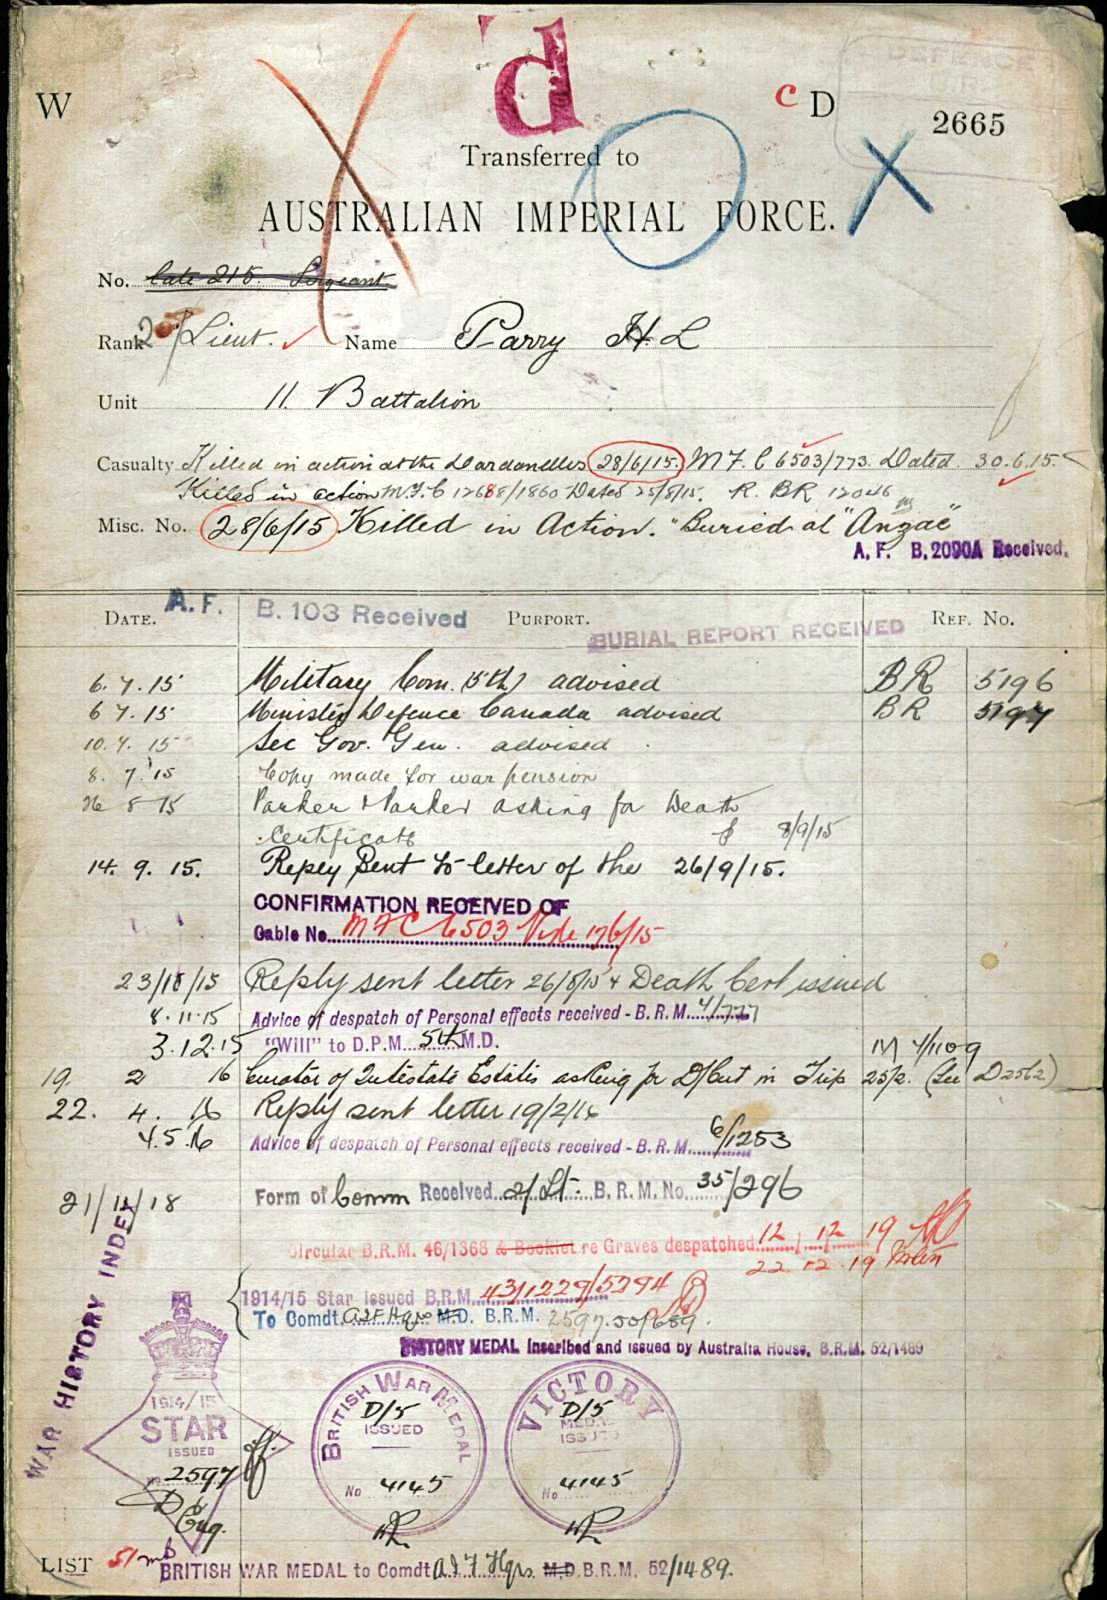 d
W
C D
2665
Transferred to
AUSTRALIAN IMPERIAL FORCE.
No. late 215. Sergeant.
Rank 2/Lieut. Name Parry H. L
Unit 11. Battalion
Casualty Killed in action at the Dardanelles 28/6/15. M F. C 6503/773. Dated 30.6.15.
Killed in action M.F.C 12688/1860 Dated 25/8/15. R. BR 12046
Misc. No. 28/6/15 Killed in Action. "Buried at "Anzac"
A. F. B. 2090A Received.
A. F. B. 103 Received
DATE. PURPORT. REF. NO.
BURIAL REPORT RECEIVED
6. 7. 15 Military Com. (5th) advised BR 5196
6 7. 15 Minister Defence Canada advised BR 5197
10. 7. 15 Sec Gov. Gen. advised
8. 7. 15 Copy made for war pension
26 8 15 Parker & Parker asking for Death
Certificate 8/9/15
14. 9. 15. Reply Sent to letter of the 26/9/15.
CONFIRMATION RECEIVED OF
Cable No. M F C 6503 Vide 17/6/15
23/10/15 Reply sent letter 26/8/15 & Death Cert issued
8. 11. 15 Advice of despatch of Personal effects received - B. R. M. 4/777
3. 12. 15 "Will" to D.P.M. 5th M.D. M 4/1109
19. 2 16 Curator of Intestate Estates asking for D/Cert in Trip 25/2. (See D2562)
22. 4. 16 Reply sent letter 19/2/16
4. 5. 16 Advice of despatch of Personal effects received - B. R. M. 6/1253
21/11/18 Form of Comm Received 2/Lt. B. R. M. No. 35/296
Circular B.R.M. 46/1368 & Booklet re Graves despatched 12 . 12 19
22. 12. 19
1914/15 Star issued B.R.M. 43/1229/5294
To Comdt. AIF Hqrs M.D. B.R.M. 2597. 50/689.
VICTORY MEDAL inscribed and issued by Australia House, B.R.M. 52/1489
WAR HISTORY INDEX
1914/15
STAR
ISSUED
2597
BRITISH WAR MEDAL
D/5
ISSUED
No 4145
VICTORY
D/5
MEDAL
ISSUED
No 4145
LIST 51
BRITISH WAR MEDAL to Comdt A I F Hqrs. M.D. B.R.M. 52/1489.